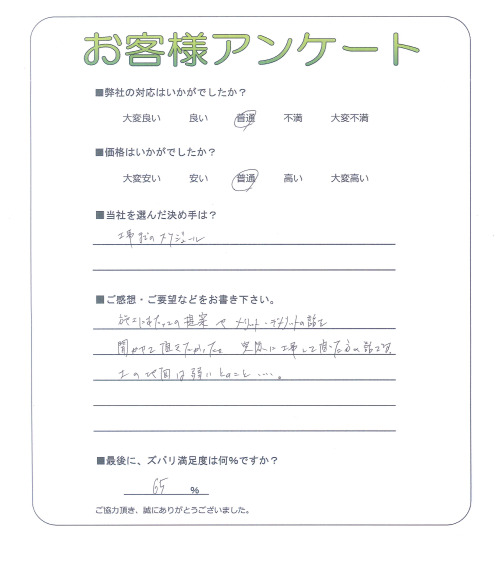 お客様アンケート
■弊社の対応はいかがでしたか？
大変良い 良い 普通 不満 大変不満
■価格はいかがでしたか？
大変安い 安い 普通 高い 大変高い
■当社を選んだ決め手は？
工事までのスケジュール
■ご感想・ご要望などをお書き下さい。
施工にあたっての提案や メリット・デメリットの話を
聞かせて頂きたかった。実際に工事して頂いた方の話で
土の地面は弱いとのこと・・・・。
■最後に、ズバリ満足度は何%ですか？
65 %
ご協力頂き、誠にありがとうございました。